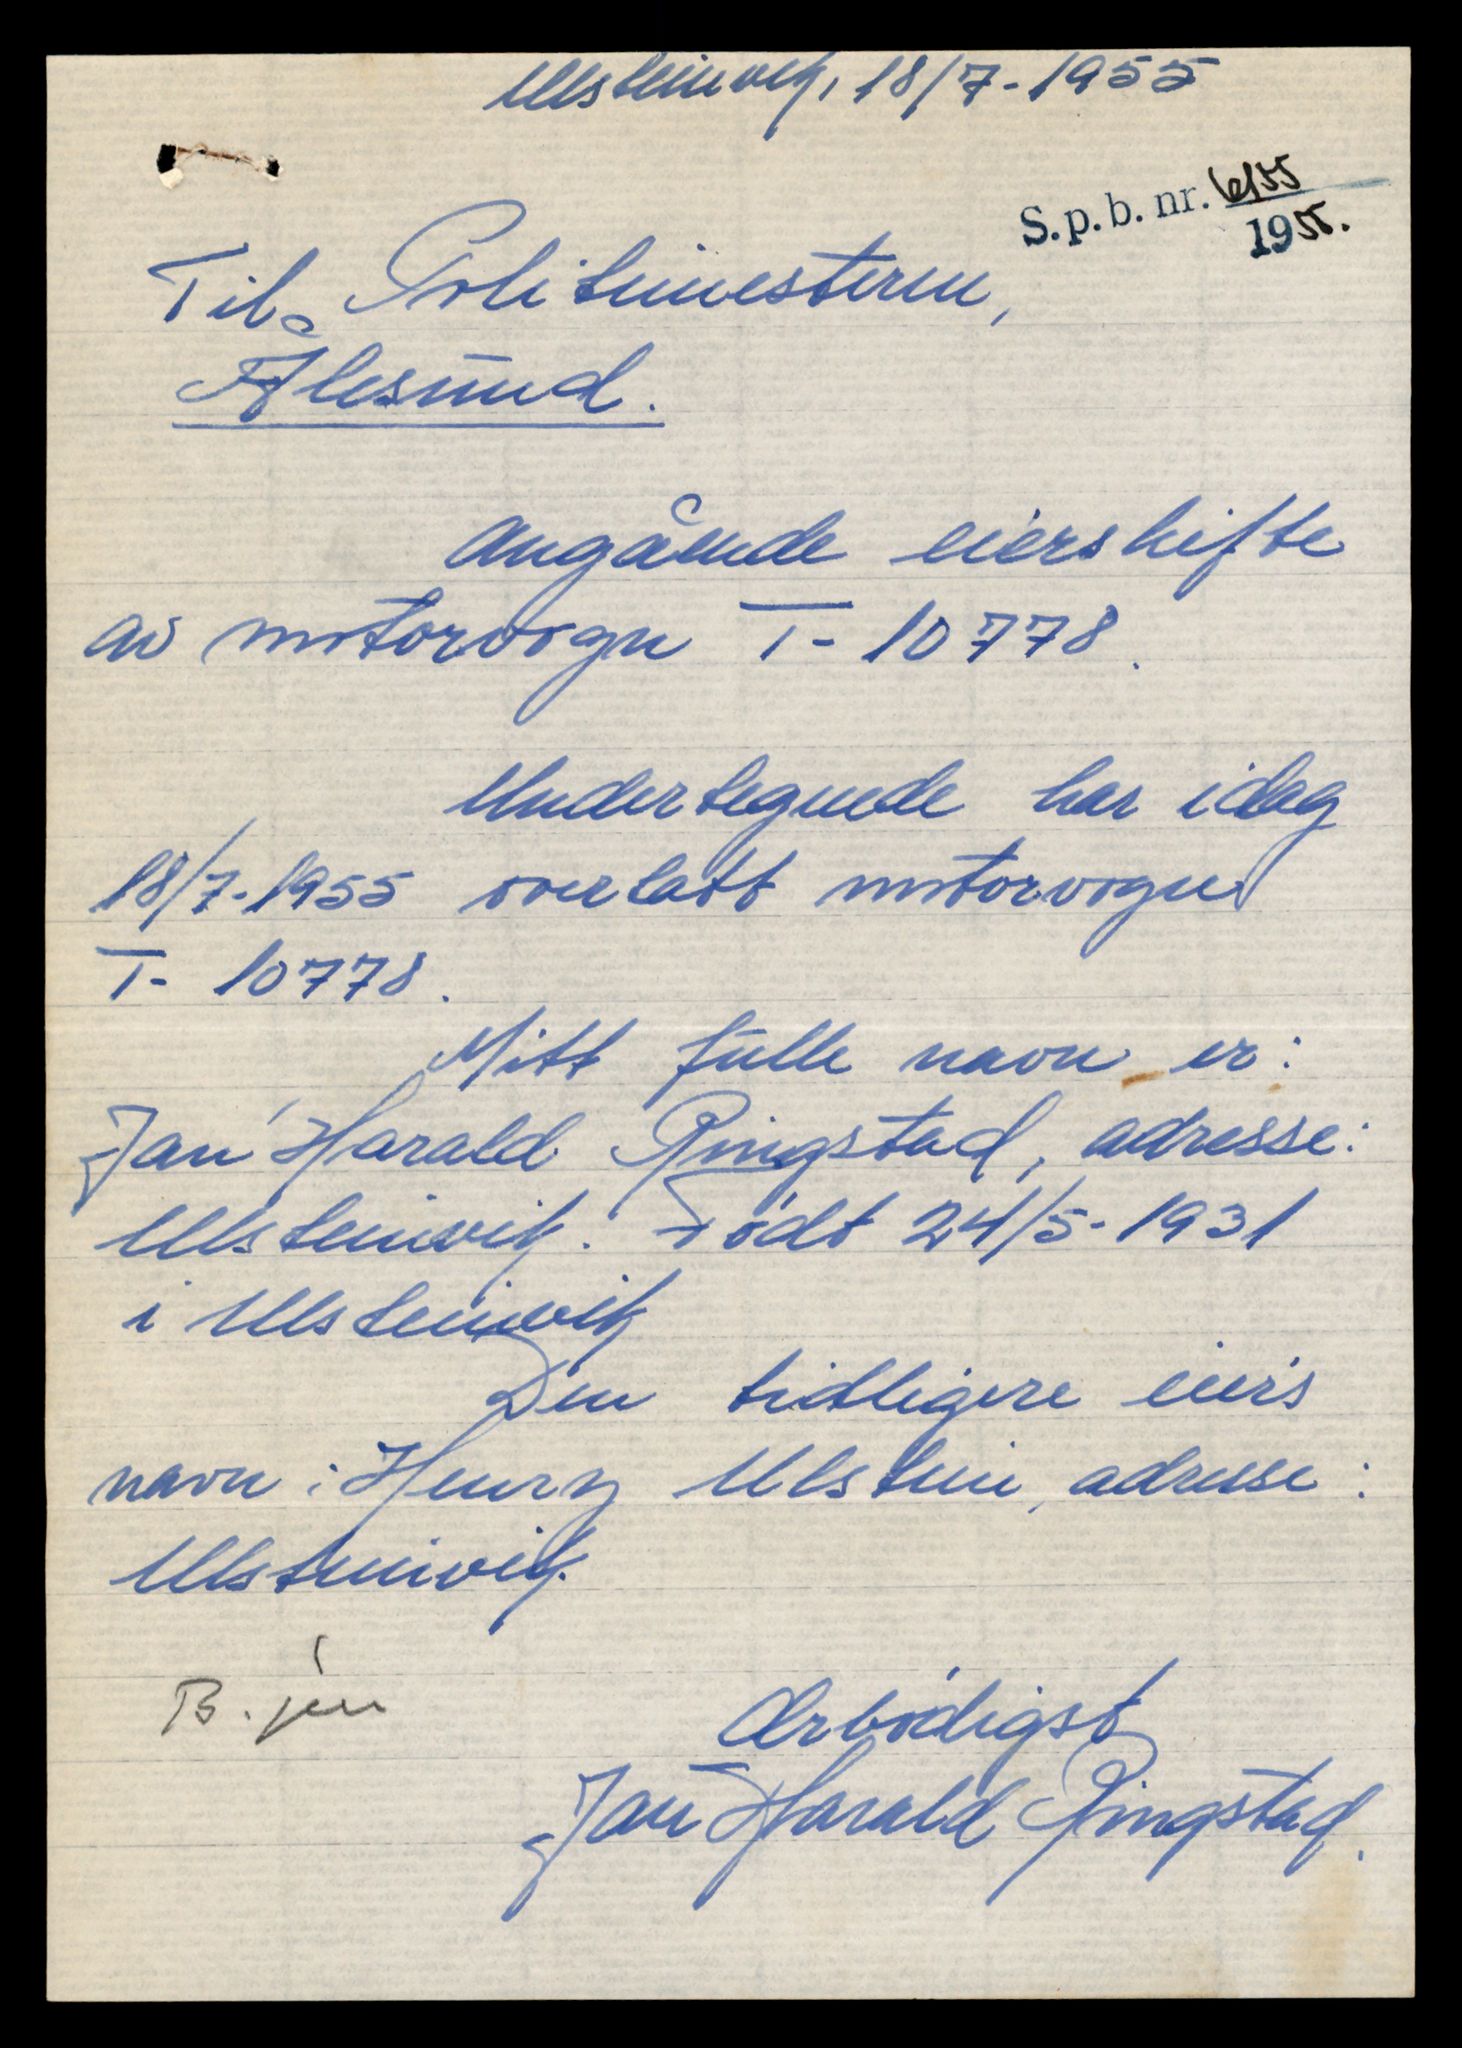 Ulsteinvik, 18/7-1955
S.p.b. nr. 6155
1955.
Til Politimesteren,
Ålesund.
Angående eierskifte
av motorvogn T-10778.
Undertegnede har idag
18/7-1955 overlatt motorvogn
T-10778.
Mitt fulle navn er:
Jan Harald Ringstad, adresse:
Ulsteinvik. Født 24/5-1931
i Ulsteinvik
Den tidligere eiers
navn: Henry Ulstein, adresse:
Ulsteinvik.
B.
Ærbødigst
Jan Harald Ringstad.